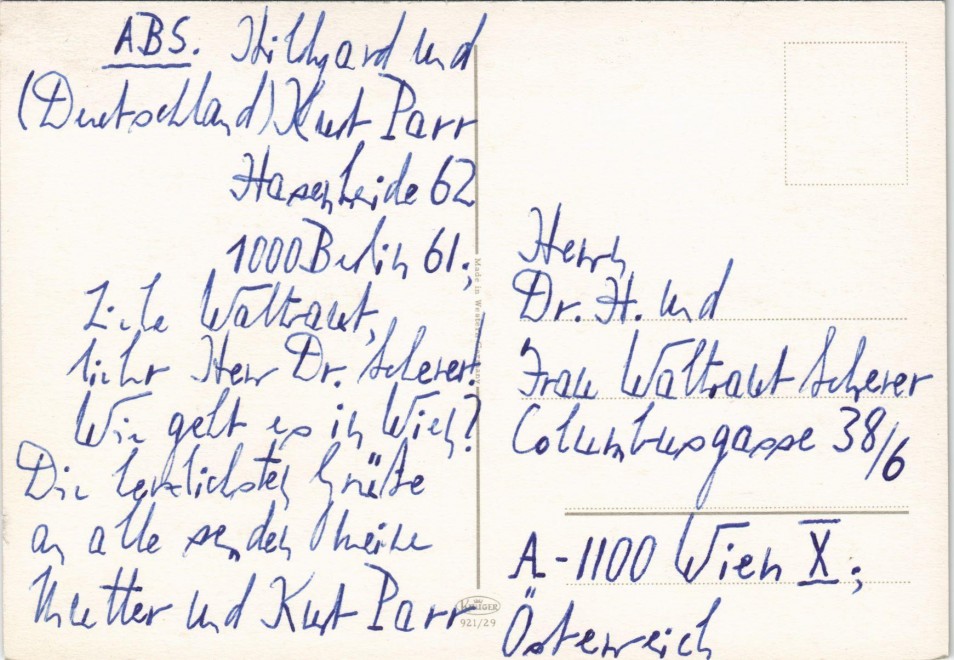 ABS. Hildgard und
(Deutschland) Kurt Parr
Hasenheide 62
1000 Berlin 61;
Liebe Waltraut,
lieber Herr Dr. Scherer!
Wie geht es in Wien?
Die herzlichsten Grüße
an alle senden meine
Mutter und Kurt Parr
Made in Western Germany
KRÜGER
921/29
Herrn
Dr. H. und
Frau Waltraut Scherer
Columbusgasse 38/6
A-1100 Wien X;
Österreich